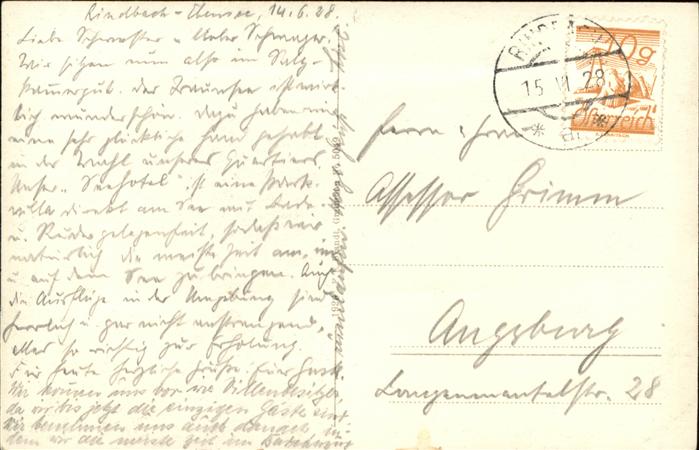 Rindbach-Ebensee, 14.6.28.
Liebe Schwester u. lieber Schwager,
Wir sitzen nun also im Salz-
kammergut. Der Traunsee ist wirk-
lich wunderschön. Dazu haben wir
eine sehr glückliche Hand gehabt
in der Wahl unseres Quartiers.
Unser „Seehotel" ist eine Park-
villa direkt am See mit Bade-
u. Rudergelegenheit, sodaß wir
natürlich die meiste Zeit am, im
u. auf dem See zubringen. Auch
die Ausflüge in der Umgebung sind
herrlich u. gar nicht anstrengend,
alles so richtig zur Erholung.
Für heute herzliche Grüße. Euer
Wir kommen uns vor wie Villenbesitzer,
da wir bis jetzt die einzigen Gäste sind
Wir benehmen uns auch danach, in-
dem wir die meiste Zeit im
RINDBACH
15 VI 28
* a *
10g
Österreich
Herrn u. Frau
Assessor Grimm
Augsburg
Langenmantelstr. 28